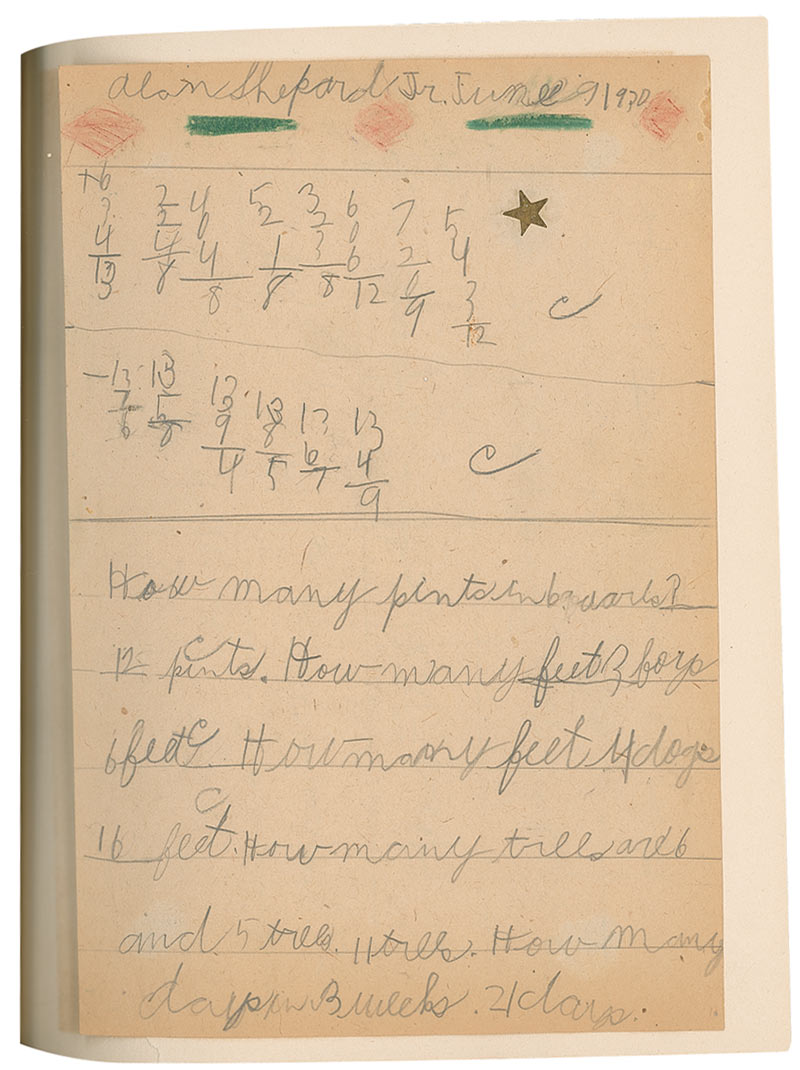 Alan Shepard Jr. June 9 1930
+6 2 4 5 3 6 7 5
3 2 0 2 2 0 2 4
4 4 4 1 3 6 0 3
13 8 8 8 8 12 9 12
C
-13 13 13 13 13 13
7 5 9 8 6 4
6 8 4 5 7 9
C
How many pints in 6 quarts?
C
12 pints. How many feet 3 boys
C
6 feet. How many feet 4 dogs
C
16 feet. How many trees are 6
and 5 trees. 11 trees. How many
days in 3 weeks. 21 days.